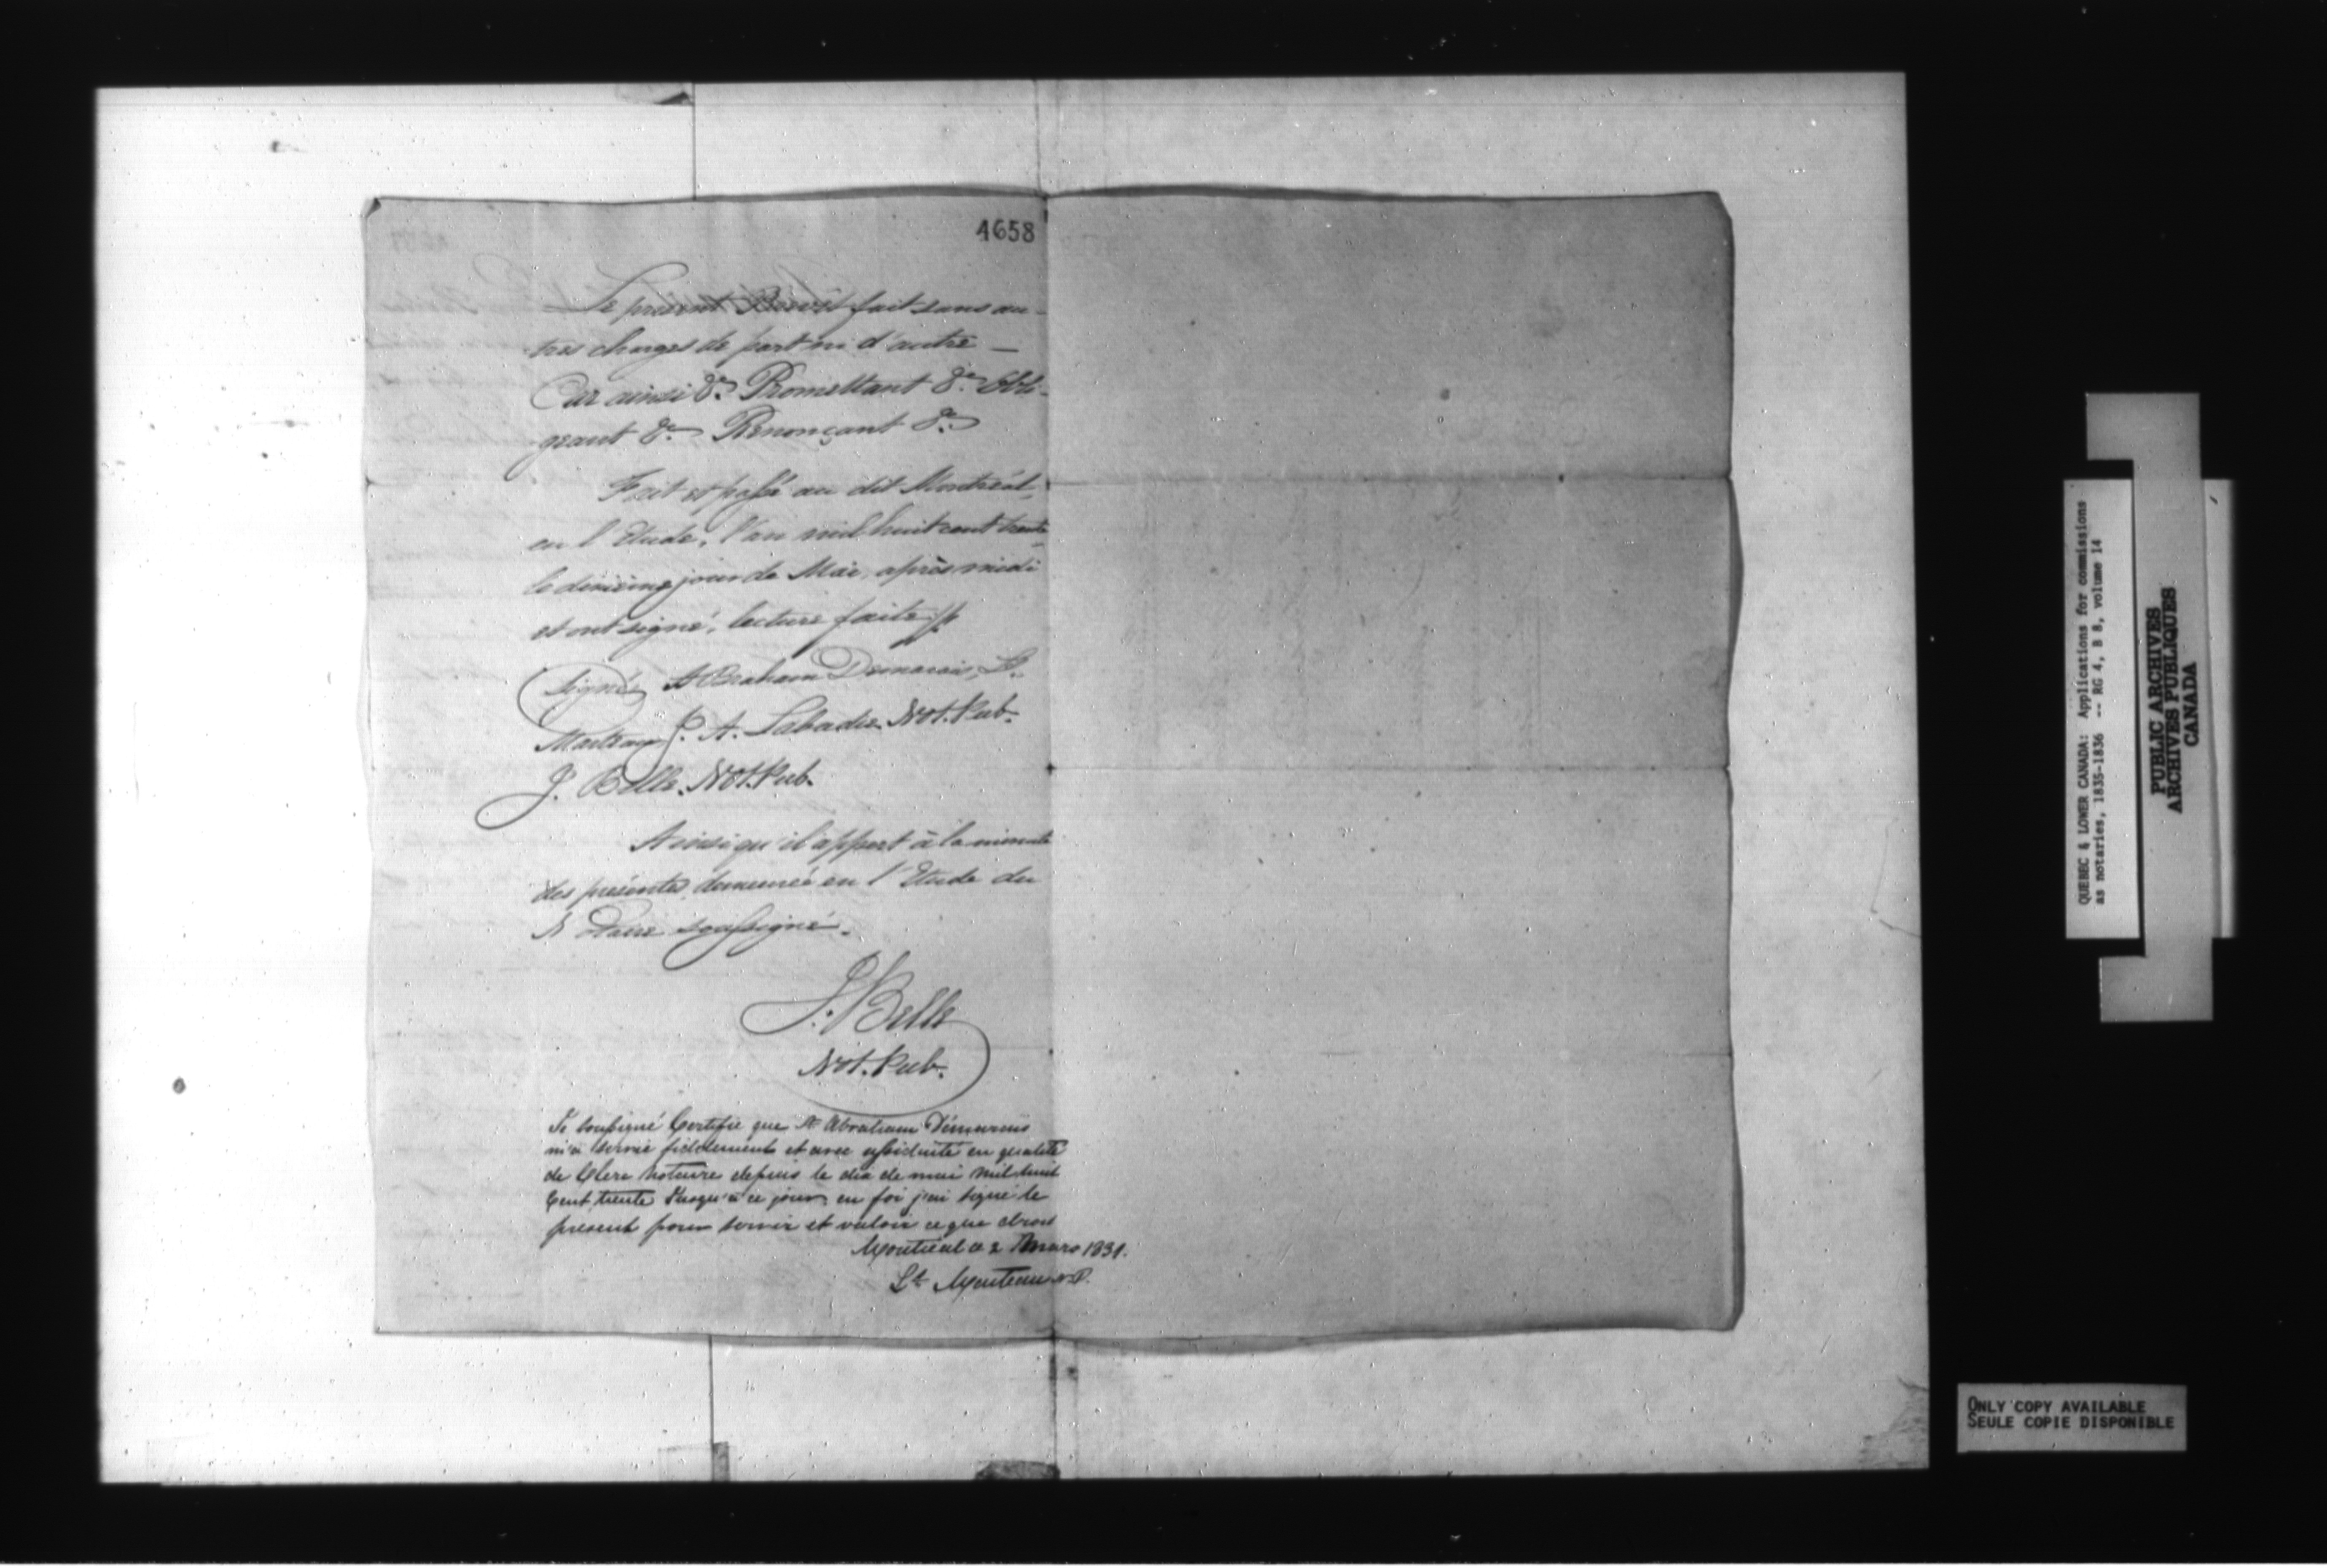 4658
Le présent Brevêt fait sans au-
tres charges de part ni d'autre —
Car ainsi &c. Promettant &c. Obli-
geant &c. Renonçant &c.
Fait et passé au dit Montréal,
en l'Etude, l'an mil huit cent trente
le dixième jour de Mai, après midi
et ont signé, lecture faite
(Signé) Abraham Demarais, Lt.
Marteau, J. A. Labadie Not. Pub.
J. Belle. Not. Pub.
Ainsi qu'il appert à la minute
des présentes demeurée en l'Etude du
Notaire soussigné.
J. Belle
Not. Pub.
Je soussigné Certifie que Mr Abraham Démarais
m'a servie fidelement et avec assiduité en qualité
de Clerc Notaire depuis le dix de mai mil huit
Cent trente Jusqu'à ce jour, en foi j'ai signé le
present pour servir et valoir ce que droit
Montréal ce 2 Mars 1831.
Lt Marteau N.P.
QUEBEC & LOWER CANADA: Applications for commissions
as notaries, 1835-1836 -- RG 4, B 8, volume 14
PUBLIC ARCHIVES
ARCHIVES PUBLIQUES
CANADA
ONLY COPY AVAILABLE
SEULE COPIE DISPONIBLE